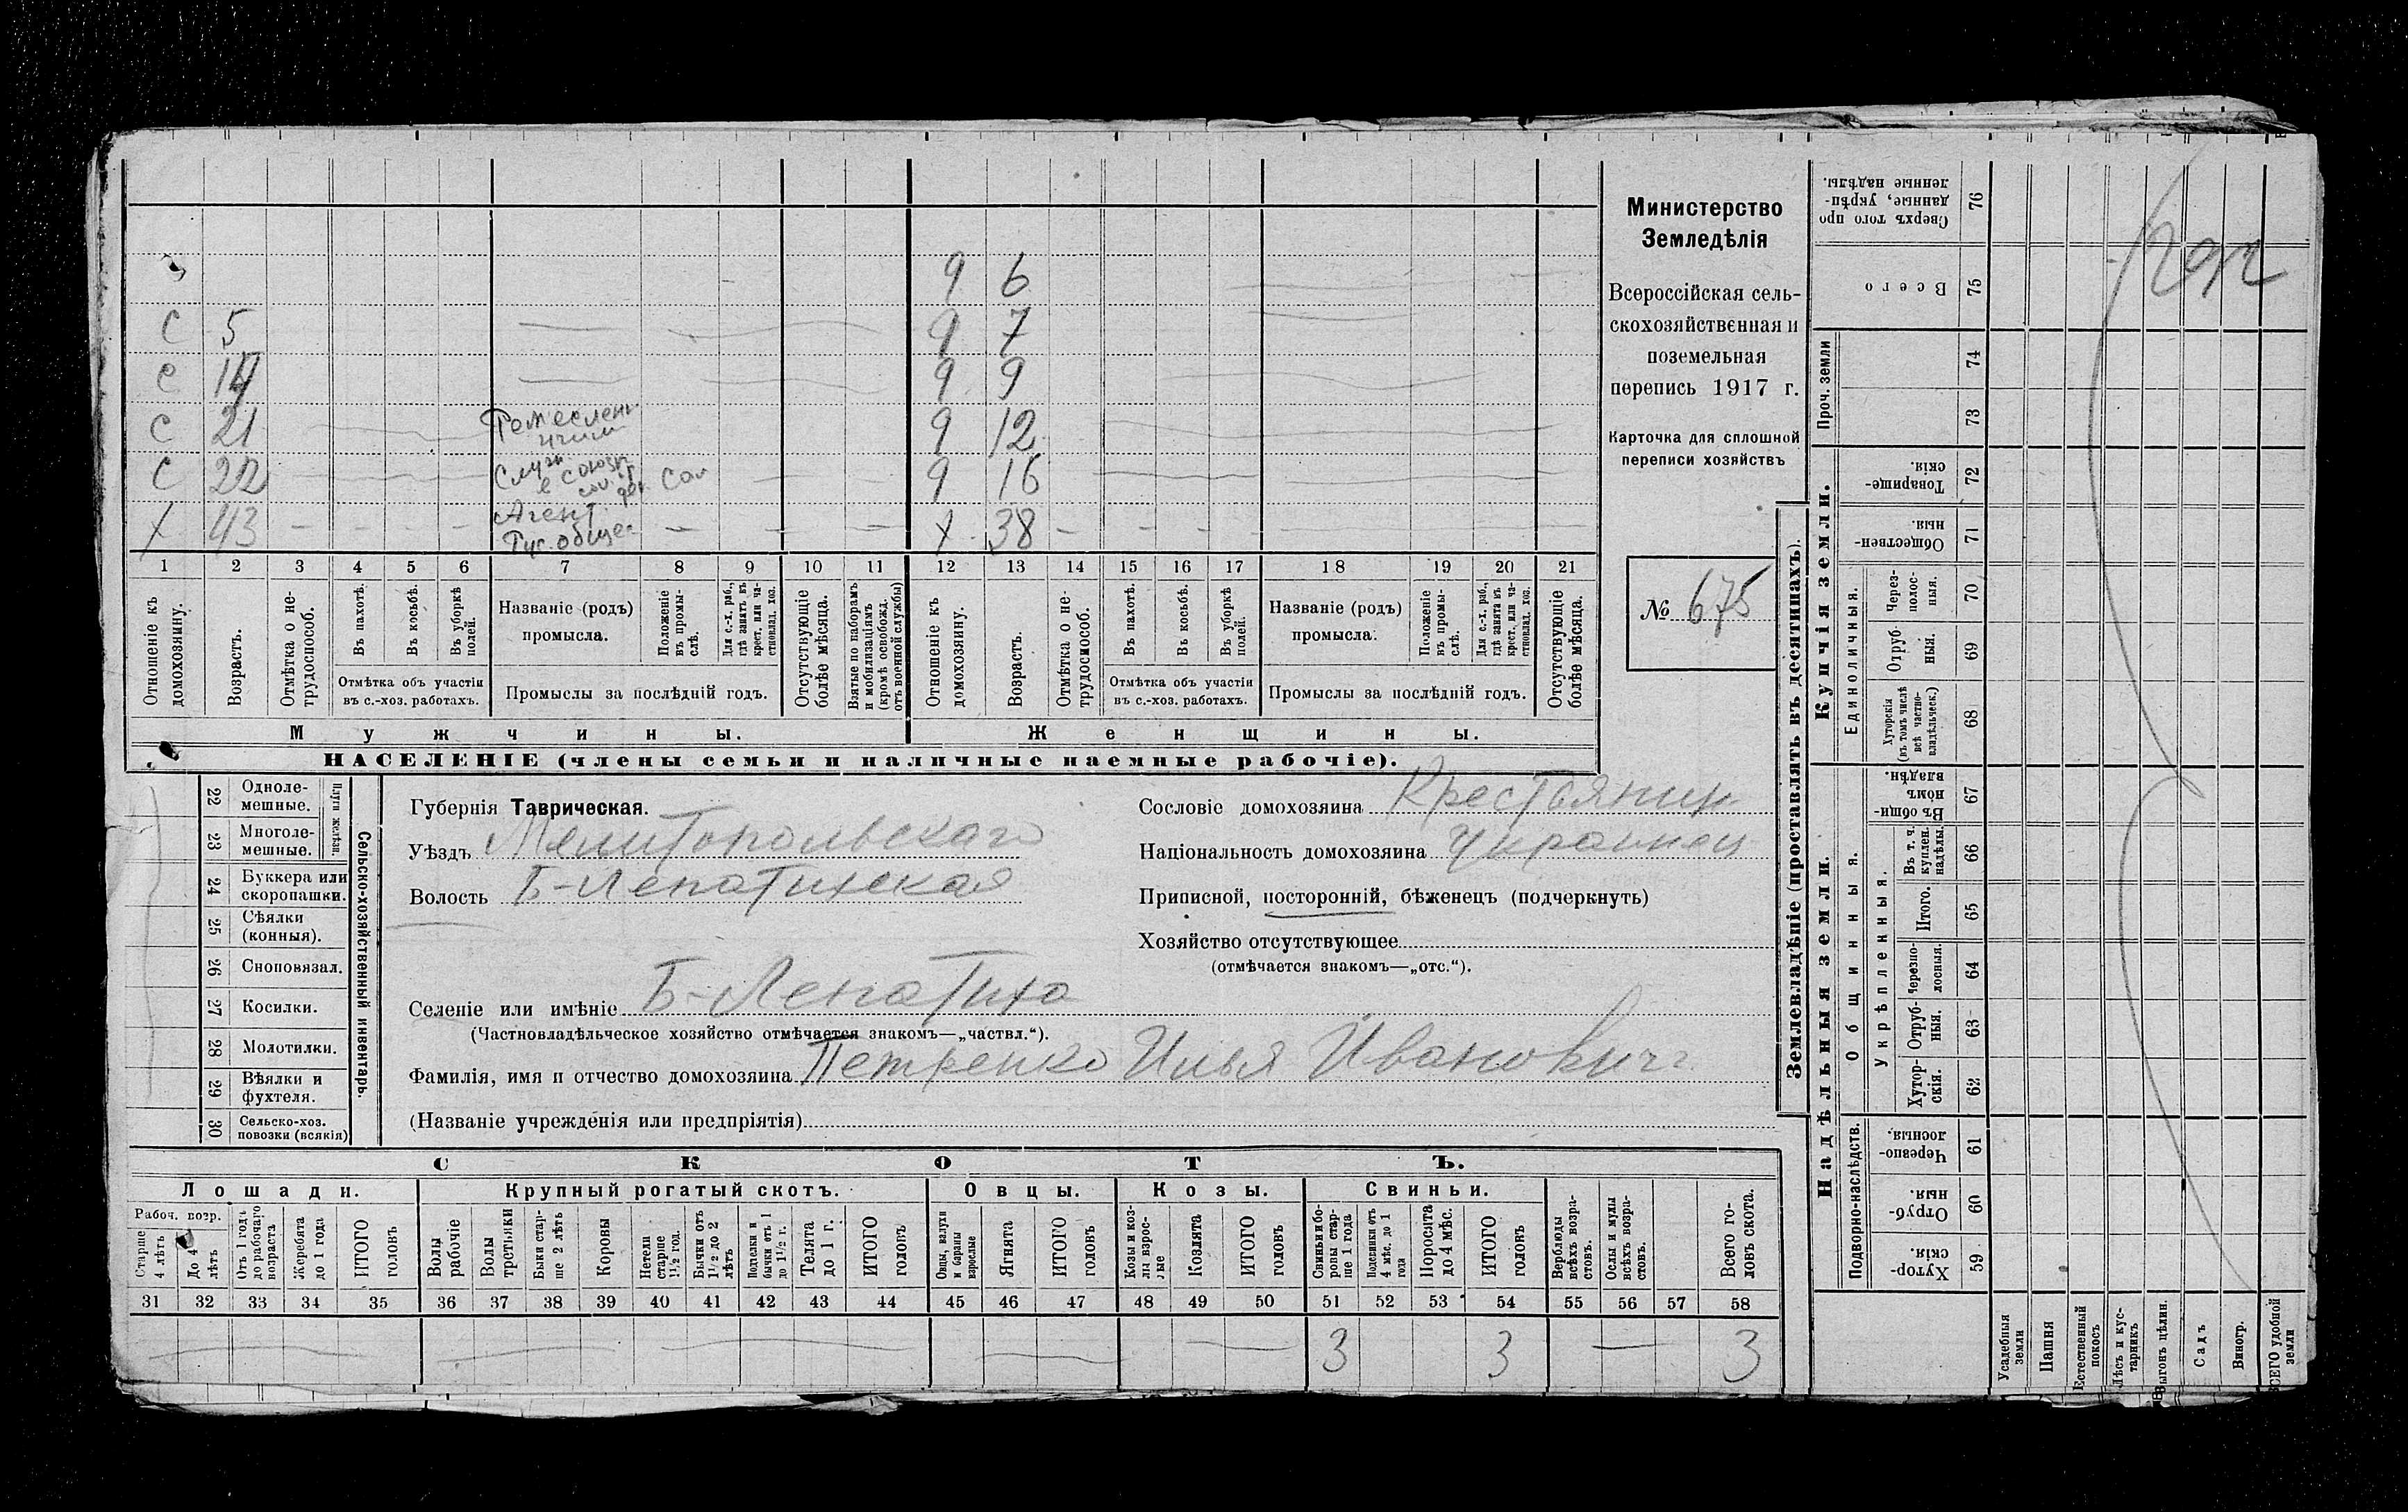 9 6
С 5 9 7
С 14 9 9
С 21 Ремеслен 9 12
С 22 9 16
Х 43 Агент Х 38
1 2 3 4 5 6 7 8 9 10 11 12 13 14 15 16 17 18 19 20 21
Отношеніе къ домохозяину.
Возрастъ.
Отмѣтка о не-
трудоспособ.
Въ пахотѣ.
Въ косьбѣ.
Въ уборкѣ полей.
Отмѣтка объ участіи
въ с.-хоз. работахъ.
Названіе (родъ)
промысла.
Положеніе
въ промы-
слѣ.
Для с.-х. раб.,
гдѣ занятъ въ
крест. или ча-
стновлад. хоз.
Промыслы за послѣдній годъ.
Отсутствующіе
болѣе мѣсяца.
Взятые по наборамъ
и мобилизаціямъ
(кромѣ освобожд.
отъ военной службы)
Отношеніе къ
домохозяину.
Возрастъ.
Отмѣтка о не-
трудоспособ.
Въ пахотѣ.
Въ косьбѣ.
Въ уборкѣ
полей.
Отмѣтка объ участіи
въ с.-хоз. работахъ.
Названіе (родъ)
промысла.
Положеніе
въ промы-
слѣ.
Для с.-х. раб.,
гдѣ занята въ
крест. или ча-
стновлад. хоз.
Промыслы за послѣдній годъ.
Отсутствующіе
болѣе мѣсяца.
Мужчины.
Женщины.
НАСЕЛЕНІЕ (члены семьи и наличные наемные рабочіе).
Министерство
Земледѣлія
Всероссійская сель-
скохозяйственная и
поземельная
перепись 1917 г.
Карточка для сплошной
переписи хозяйствъ
№ 675
22 Одноле-
мешные.
23 Многоле-
мешные.
Плуги желѣзн.
24 Буккера или
скоропашки.
25 Сѣялки
(конныя).
26 Сноповязал.
27 Косилки.
28 Молотилки.
29 Вѣялки и
фухтеля.
30 Сельско-хоз.
повозки (всякія)
Сельско-хозяйственный инвентарь.
Губернія Таврическая.
Уѣздъ Мелитопольскаго
Волость Б-Лепатихская
Селеніе или имѣніе Б-Лепатиха
(Частновладѣльческое хозяйство отмѣчается знакомъ—„частвл.“).
Фамилія, имя и отчество домохозяина Петренко Илья Иванович
(Названіе учрежденія или предпріятія)
Сословіе домохозяина Крестьянин
Національность домохозяина Украинец
Приписной, посторонній, бѣженецъ (подчеркнуть)
Хозяйство отсутствующее
(отмѣчается знакомъ—„отс.“).
СКОТЪ.
Лошади. Крупный рогатый скотъ. Овцы. Козы. Свиньи.
Рабоч. возр.
Старше
4 лѣтъ
До 4
лѣтъ
Отъ 1 года
до рабочаго
возраста
Жеребята
до 1 года
ИТОГО
головъ
Волы
рабочіе
Волы
третьяки
Быки стар-
ше 2 лѣтъ
Коровы
Нетели
старше
1½ год.
Бычки отъ
1½ до 2
лѣтъ
Подтелки и
бычки отъ 1
до 1½ г.
Телята
до 1 г.
ИТОГО
головъ
Овцы, валухи
и бараны
взрослые
Ягнята
ИТОГО
головъ
Козы и коз-
лы взрос-
лые
Козлята
ИТОГО
головъ
Свиньи и бо-
ровы стар-
ше 1 года
Подсвинки отъ
4 мѣс. до 1
года
Поросята
до 4 мѣс.
ИТОГО
головъ
Верблюды
всѣхъ возра-
стовъ.
Ослы и мулы
всѣхъ возра-
стовъ.
Всего го-
ловъ скота.
31 32 33 34 35 36 37 38 39 40 41 42 43 44 45 46 47 48 49 50 51 52 53 54 55 56 57 58
3 3 3
Землевладѣніе (проставлять въ десятинахъ).
Купчія земли.
Надѣльныя земли.
Сверхъ того про
данные, укрѣп-
ленные надѣлы.
76
Всего
75
Проч. земли
74
73
Товарище-
скія.
72
Обществен-
ныя.
71
Единоличныя.
Через-
полос-
ныя.
70
Отруб-
ныя.
69
Хуторскія
(въ томъ числѣ
всѣ частно-
владѣльческ.)
68
Общинныя.
Въ общи-
номъ
владѣн.
67
Укрѣпленныя.
Въ т. ч.
куплен.
надѣлы.
66
Итого.
65
Черезпо-
лосныя.
64
Отруб-
ныя.
63
Хутор-
скія.
62
Подворно-наслѣдств.
Черезпо-
лосныя.
61
Отруб-
ныя.
60
Хутор-
скія.
59
Усадебныя
земли
Пашня
Естественный
покосъ
Лѣсъ и кус-
тарникъ
Выгонъ цѣлин.
Садъ
Виногр.
ВСЕГО удобной
земли